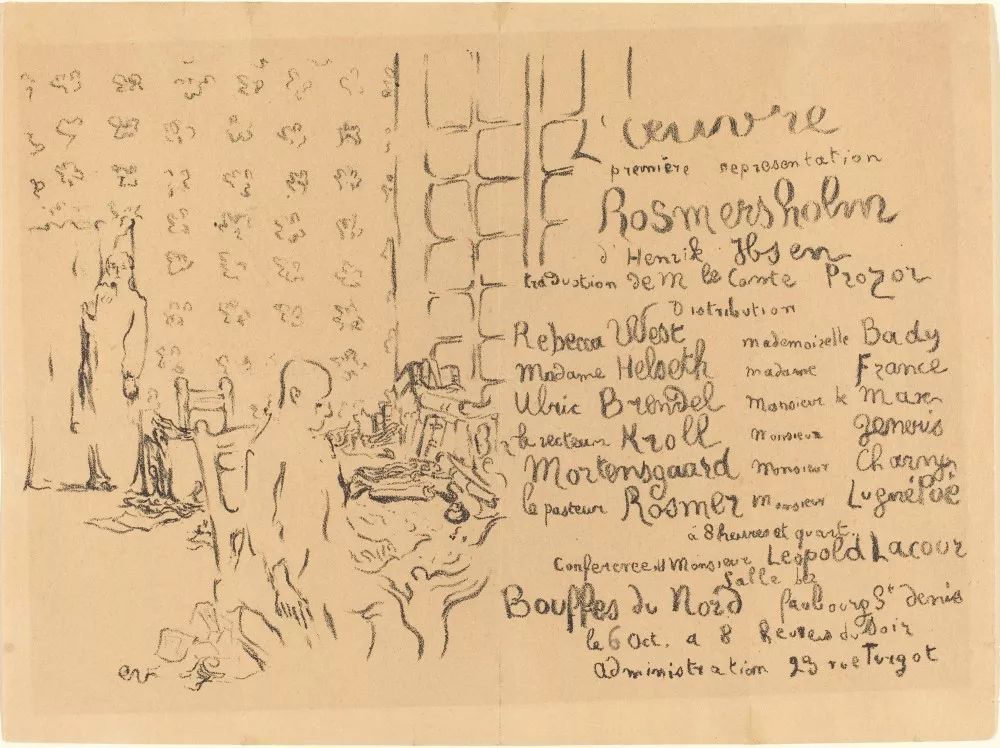 L'œuvre
première representation
Rosmersholm
d'Henrik Ibsen
traduction de M le Comte Prozor
Distribution
Rebecca West mademoiselle Bady
Madame Helseth madame France
Ulric Brendel Monsieur le Max
le recteur Kroll Monsieur
Mortensgaard Monsieur Charny
le pasteur Rosmer Monsieur Lugné Poë
à 8 heures et quart.
Conference d Monsieur Leopold Lacour
Salle des
Bouffes du Nord faubourg St denis
le 6 Oct. a 8 heures du Soir
administration 23 rue Turgot
ev